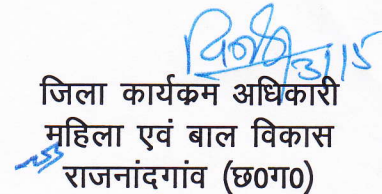 जिला कार्यक्रम अधिकारी
महिला एवं बाल विकास
राजनांदगांव (छ0ग0)